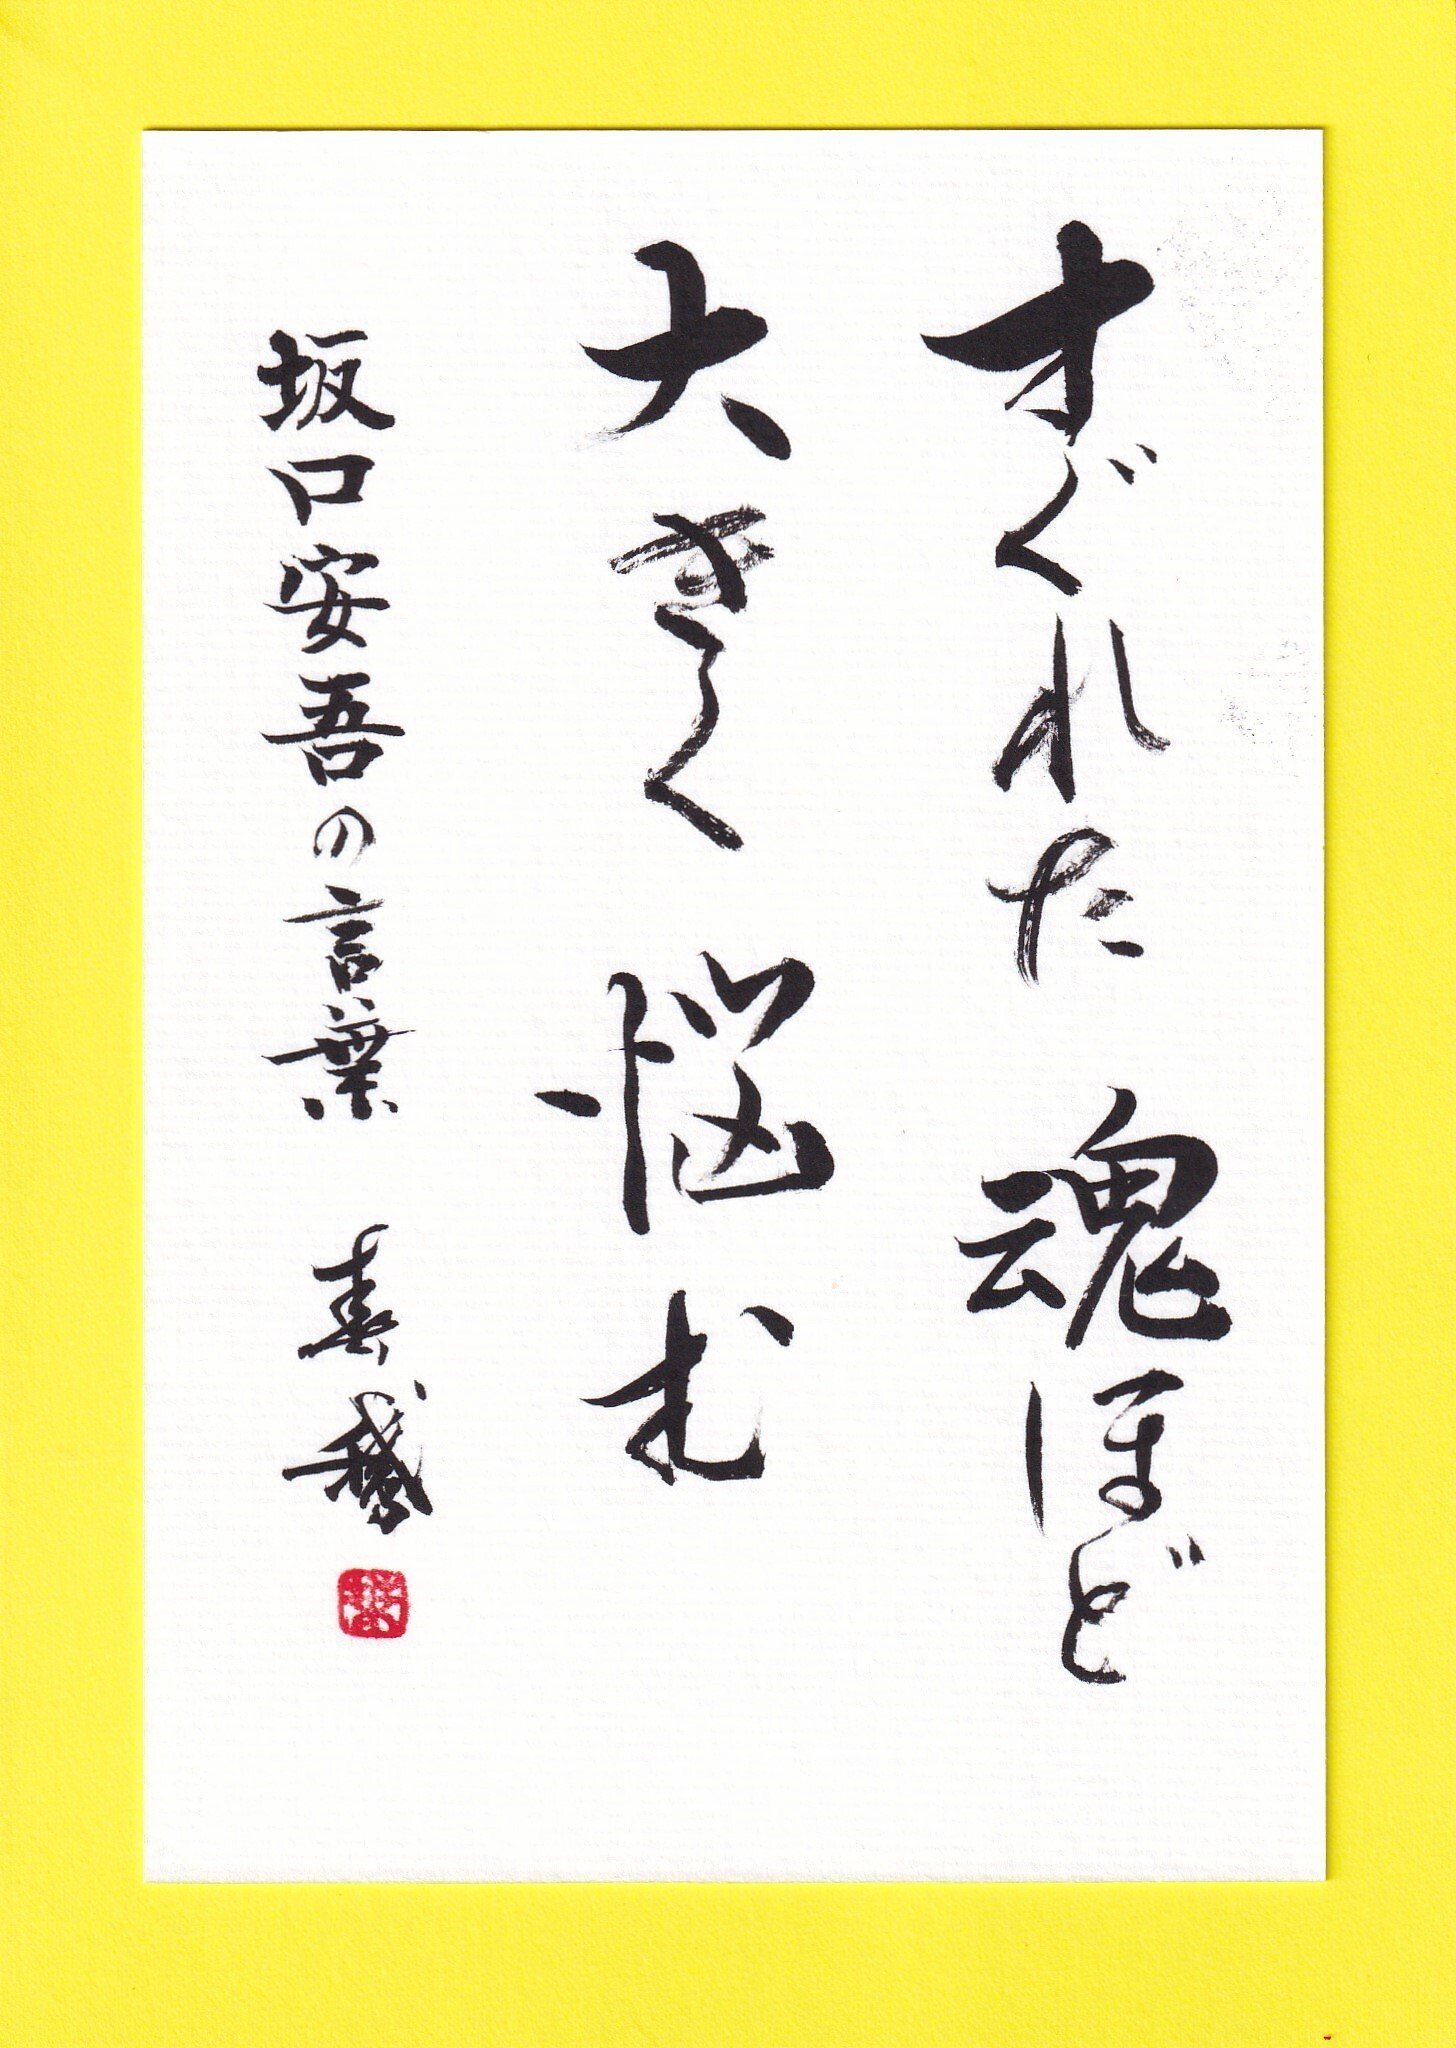 すぐれた魂ほど
大きく悩む
坂口安吾の言葉 春鵞